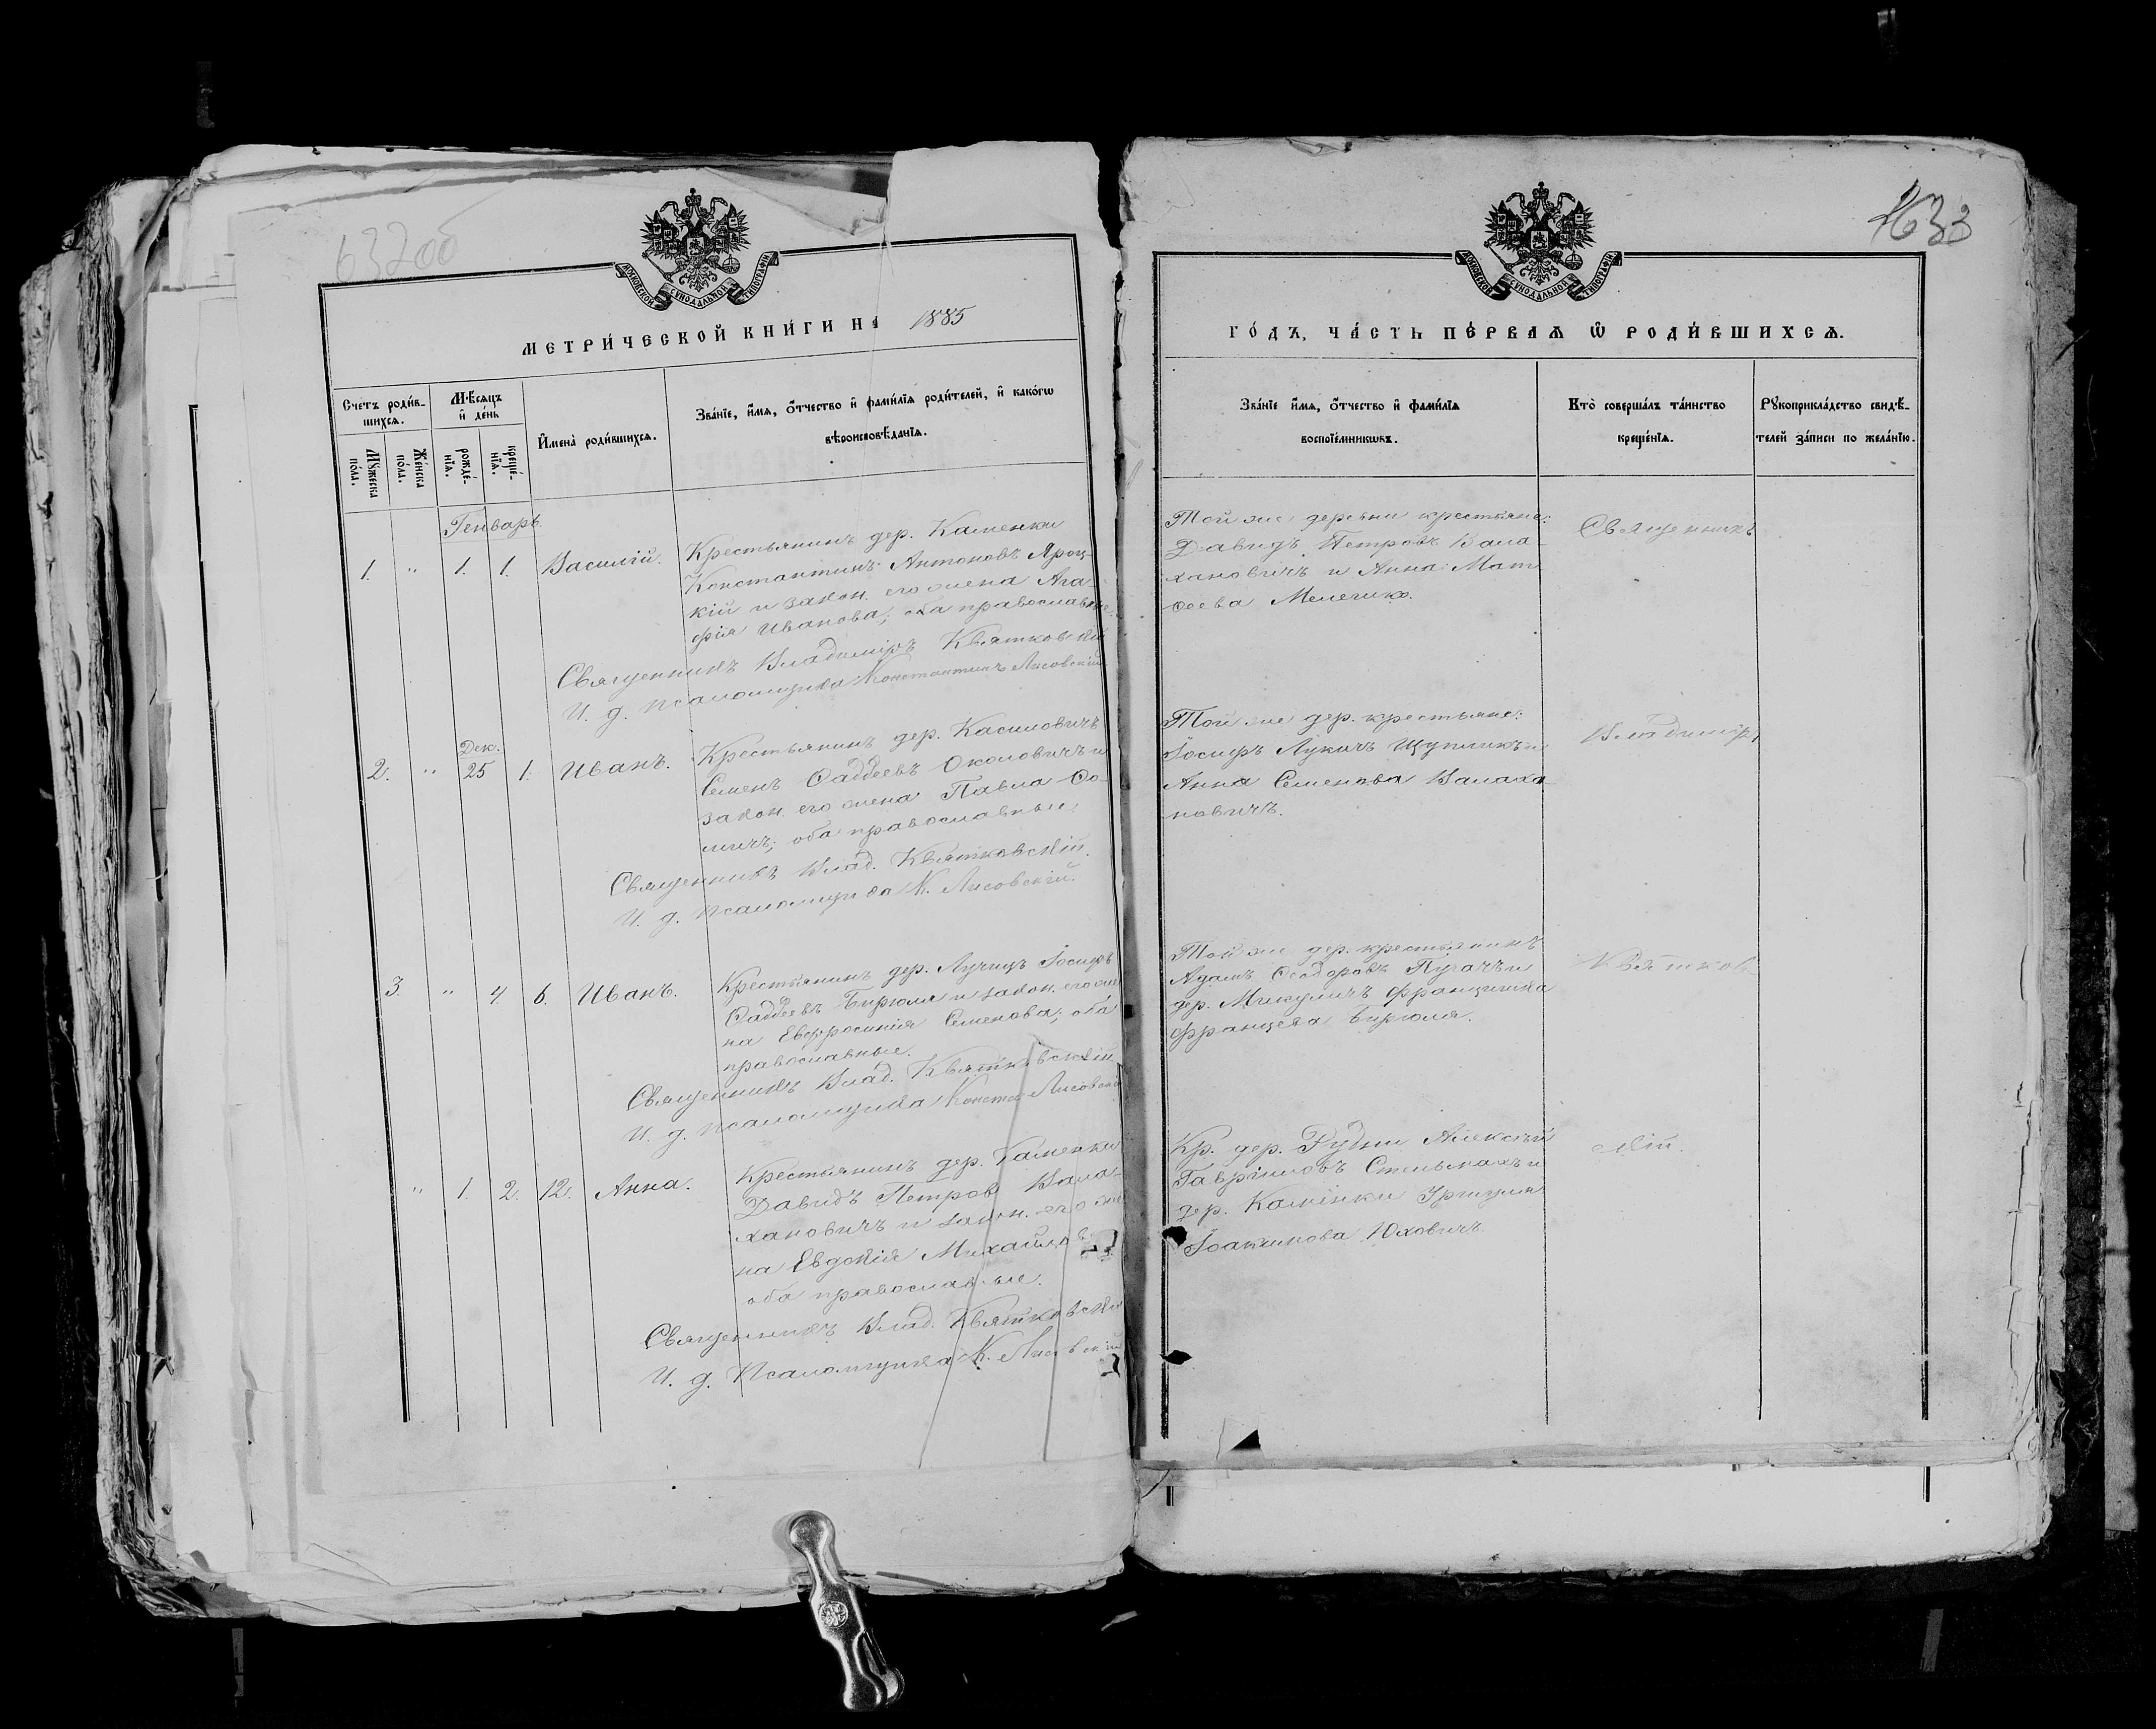 632об
МОСКОВСКОЙ СѴНОДАЛЬНОЙ ТИПОГРАФІИ
МЕТРИ́ЧЕСКОЙ КНИ́ГИ НА 1885
Счетъ роди́в-
шихсѧ.
Мѣсѧцъ
и҆ де́нь
Мꙋжеска
по́ла.
Же́нска
по́ла.
рожде́-
нїѧ.
креще́-
нїѧ.
И҆мена̀ роди́вшихсѧ.
Зва́нїе, и҆́мѧ, ѻ҆́тчество и҆ фами́лїѧ роди́телей, и҆ како́гѡ
вѣроисповѣ́данїѧ.
Генварь
1. " 1. 1. Василій.
Крестьянинъ дер. Каменки
Константинъ Антоновъ Яроц-
кій и закон. его жена Ага-
фія Иванова; оба православные.
Священникъ Владиміръ Квятковскій
И. д. псаломщика Константинъ Лисовскій.
Дек.
2. " 25 1. Иванъ.
Крестьянинъ дер. Касиловичъ
Семенъ Фаддеевъ Околовичъ и
закон. его жена Павла Фо-
мичъ; оба православные.
Священникъ Влад. Квятковскій.
И. д. псаломщика К. Лисовскій.
3. " 4. 6. Иванъ.
Крестьянинъ дер. Лучицъ Іосифъ
Фаддеевъ Бирюля и закон. его же
на Евфросинія Семенова; оба
православные.
Священникъ Влад. Квятковскій
И. д. псаломщика Конста. Лисовскій
" 1. 2. 12. Анна.
Крестьянинъ дер. Каменки
Давидъ Петровъ Вала-
хановичъ и закон. его же
на Евдокія Михайлова
оба православные.
Священникъ Влад. Квятковскій
И. д. Псаломщика К. Лисовскій
633
МОСКОВСКОЙ СѴНОДАЛЬНОЙ ТИПОГРАФІИ
ГО́ДЪ, ЧА́СТЬ ПЕ́РВАѦ Ѡ҆ РОДИ́ВШИХСѦ.
Зва́нїе и҆́мѧ, ѻ҆́тчество и҆ фами́лїѧ
воспрїе́мникѡвъ.
Кто̀ соверша́лъ та́инство
креще́нїѧ.
Рꙋкоприкла́дство свидѣ́-
телей за́писи по жела́нїю.
Той же деревни крестьяне:
Давидъ Петровъ Вала-
хановичъ и Анна Мат
феева
Священникъ
Той же дер. крестьяне:
Іосифъ Лукичъ и
Анна Семенова Валаха-
новичъ.
Владиміръ
Той же дер. крестьянинъ
Адамъ Феодоровъ Пугачъ и
дер. Микуличъ Францишка
Францева Бирюля.
Квятков-
Кр. дер. Рудни Алексѣй
Гавріиловъ Стельмахъ и
дер. Каменки
Іоакимова Юховичъ.
скій.